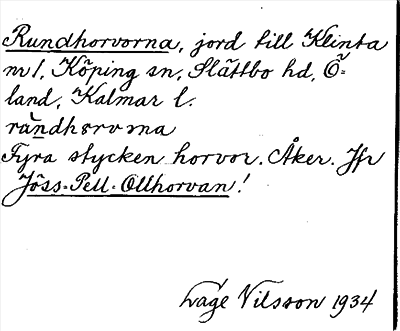 Rundhorvorna, jord till Klinta
nr 1, Köping sn, Slättbo hd, Ö=
land, Kalmar l.
Fyra stycken horvor. Åker. Jfr
Jöss-Pell-Ollhorvan!
Låge Nilsson 1934